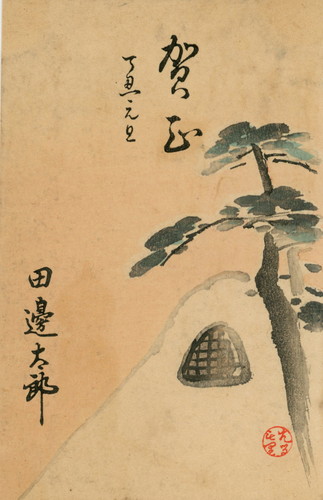 賀正
丁丑元旦
田邊太郎